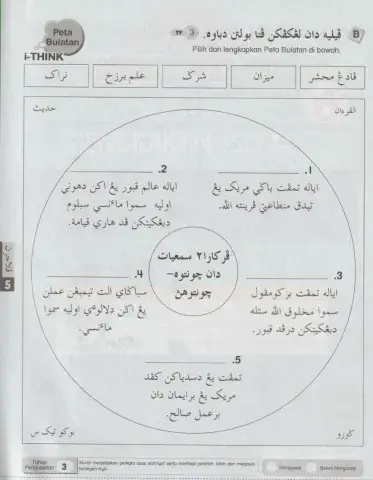 Peta
Bulatan
i-THINK
B ڤيليه دان لڠکڤکن ڤتا بولتن دباوه.
Pilih dan lengkapkan Peta Bulatan di bawah.
ڤادڠ محشر
ميزان
شرک
علم برزخ
نراک
القرءان
حديث
1.
اياله تمڤت باݢي مريک يڠ
تيدق منطاعتي ڤرينته الله.
2.
اياله عالم قبور يڠ اکن دهوني
اوليه سموا ماءنسي سبلوم
دبڠکيتکن ڤد هاري قيامة.
ڤرکارا٢ سمعيات
دان چونتوه-
چونتوهڽ
3.
اياله تمڤت برکومڤول
سموا مخلوق الله ستله
دبڠکيتکن درڤد قبور.
4.
سباݢاي الت تيمبڠن عملن
يڠ اکن دلالوءي اوليه سموا
ماءنسي.
5.
تمڤت يڠ دسدياکن کڤد
مريک يڠ برايمان دان
برعمل صالح.
ݢورو
بوکو تيک س
ڤلاجرن
5
Tahap
Penguasaan
3
Menguasai
Belum Menguasai